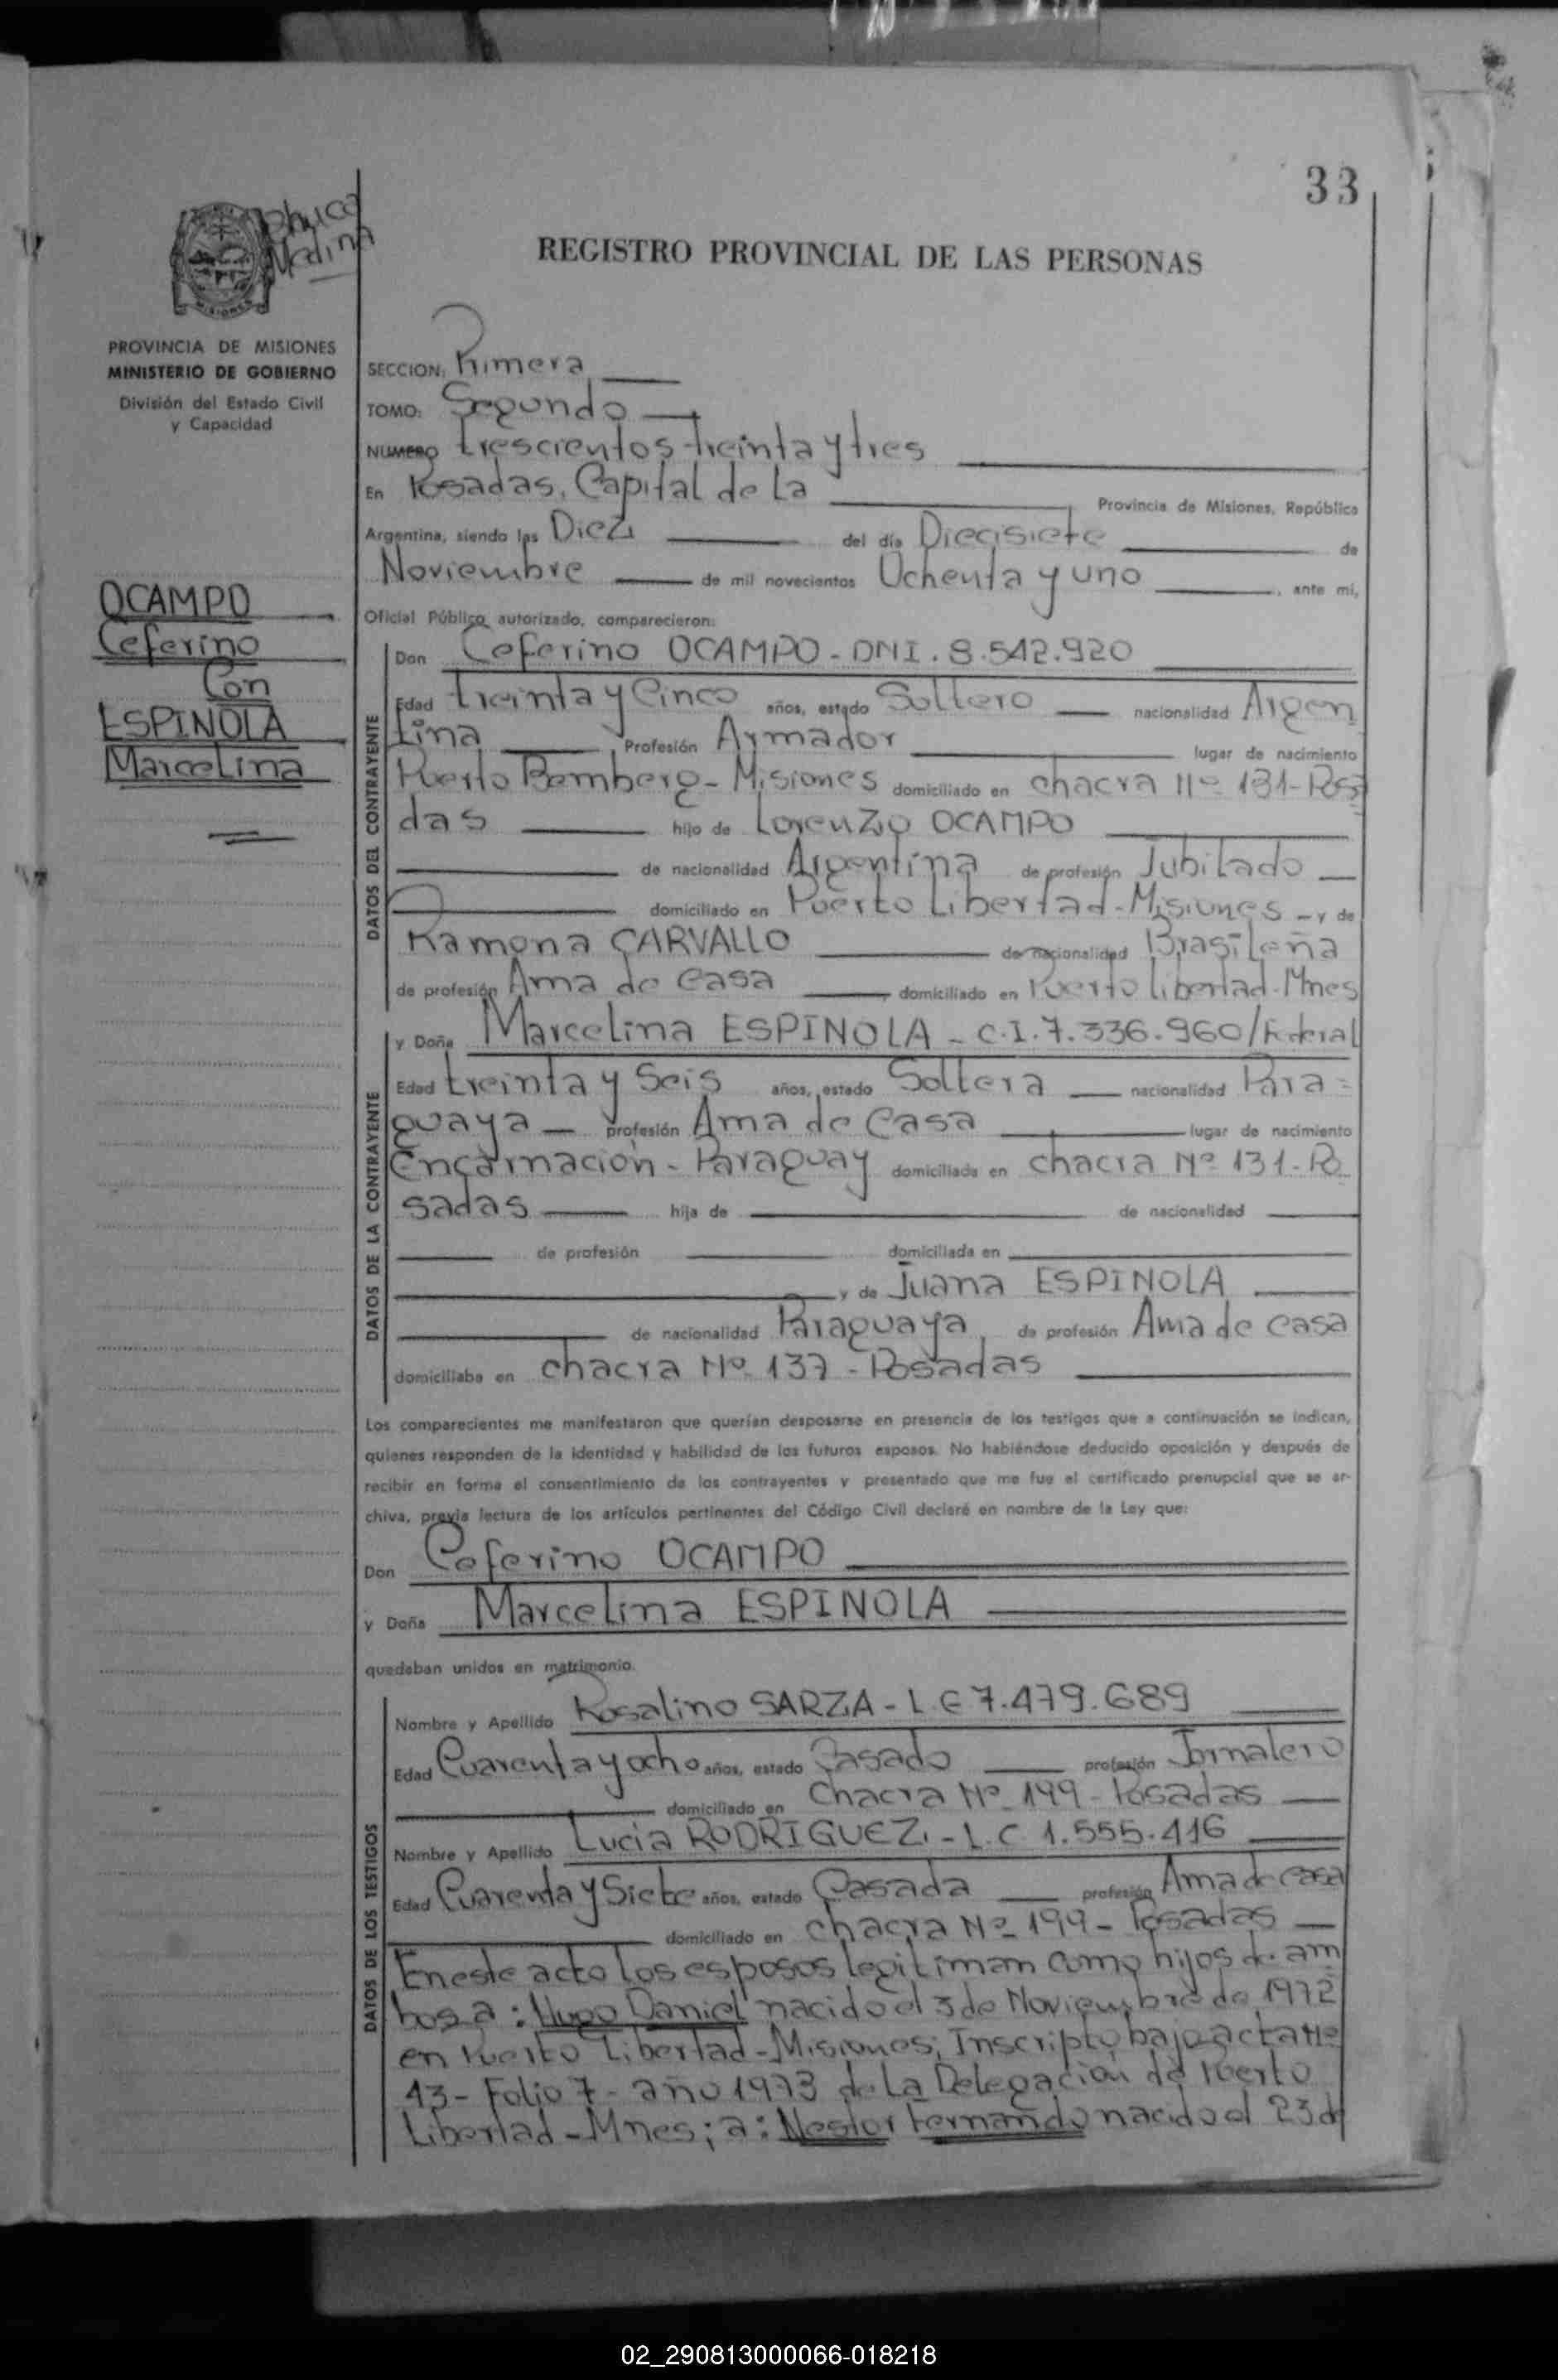 33
REGISTRO PROVINCIAL DE LAS PERSONAS
MISIONES
PROVINCIA DE MISIONES
MINISTERIO DE GOBIERNO
División del Estado Civil
y Capacidad
OCAMPO
Ceferino
Con
ESPINOLA
Marcelina
SECCION: Primera
TOMO: Segundo
NUMERO trescientos treinta y tres
En Posadas, Capital de La Provincia de Misiones, República
Argentina, siendo las Diez del día Diecisiete de
Noviembre de mil novecientos Ochenta y uno, ante mi,
Oficial Público autorizado, comparecieron:
DATOS DEL CONTRAYENTE
Don Ceferino OCAMPO - DNI. 8.542.920
Edad treinta y Cinco años, estado Soltero nacionalidad Argen
tina, Profesión Armador lugar de nacimiento
Puerto Bemberg - Misiones domiciliado en chacra Nº 131 - Posa
das hijo de Lorenzo OCAMPO
de nacionalidad Argentina de profesión Jubilado
domiciliado en Puerto Libertad - Misiones - y de
Ramona CARVALLO de nacionalidad Brasileña
de profesión Ama de Casa domiciliado en Puerto Libertad - Mnes
DATOS DE LA CONTRAYENTE
y Doña Marcelina ESPINOLA - C.I. 7.336.960/Federal
Edad treinta y Seis años, estado Soltera nacionalidad Para=
guaya profesión Ama de Casa lugar de nacimiento
Encarnación - Paraguay domiciliada en chacra Nº 131 - Po
sadas hija de de nacionalidad
de profesión domiciliada en
y de Juana ESPINOLA
de nacionalidad Paraguaya, de profesión Ama de Casa
domiciliaba en chacra Nº 137 - Posadas
Los comparecientes me manifestaron que querían desposarse en presencia de los testigos que a continuación se indican,
quienes responden de la identidad y habilidad de los futuros esposos. No habiéndose deducido oposición y después de
recibir en forma el consentimiento de los contrayentes y presentado que me fue el certificado prenupcial que se ar-
chiva, previa lectura de los artículos pertinentes del Código Civil declaré en nombre de la Ley que:
Don Ceferino OCAMPO
y Doña Marcelina ESPINOLA
quedaban unidos en matrimonio.
DATOS DE LOS TESTIGOS
Nombre y Apellido Rosalino SARZA - L.E 7.479.689
Edad Cuarenta y ocho años, estado Casado profesión Jornalero
domiciliado en Chacra Nº 199 - Posadas
Nombre y Apellido Lucia RODRIGUEZ - L.C 1.555.416
Edad Cuarenta y Siete años, estado Casada profesión Ama de casa
domiciliado en chacra Nº 199 - Posadas
En este acto los esposos legitiman como hijos de am
bos a: Hugo Daniel nacido el 3 de Noviembre de 1972
en Puerto Libertad - Misiones; Inscripto bajo acta Nº
13 - Folio 7 - año 1973 de la Delegación de Puerto
Libertad - Mnes; a: Nestor Fernando nacido el 23 de
02_290813000066-018218